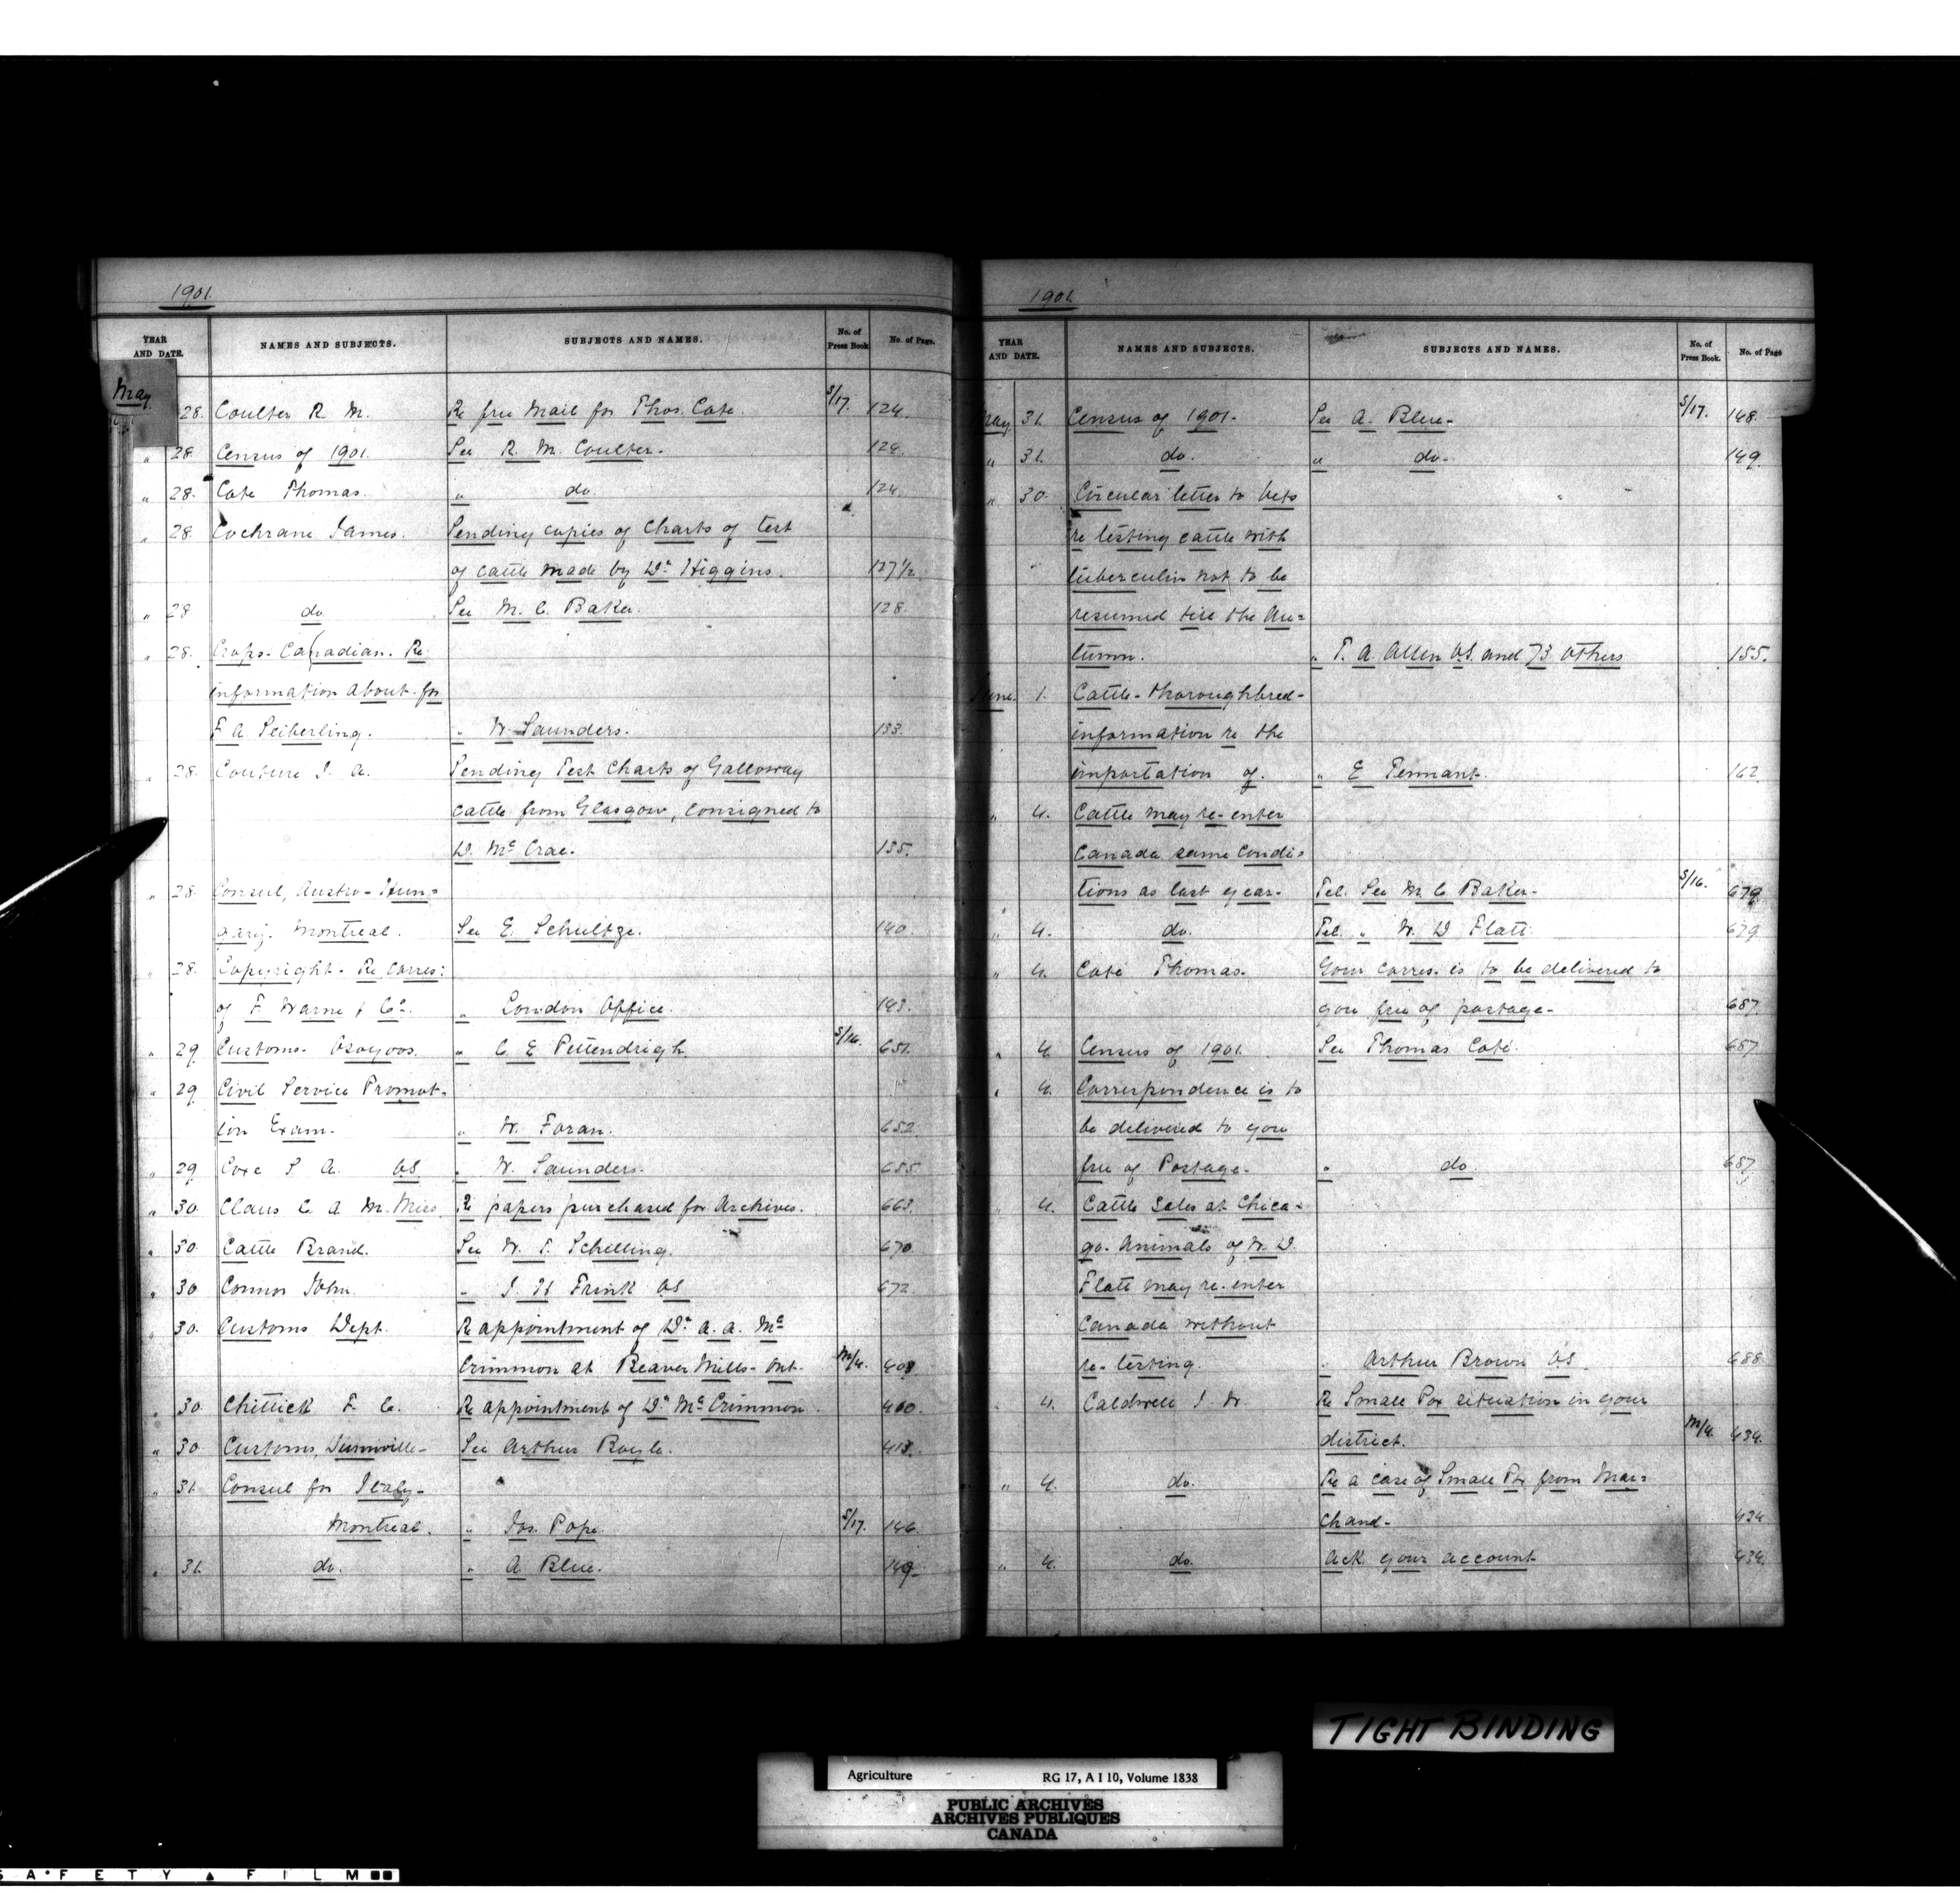 1901.
YEAR AND DATE. NAMES AND SUBJECTS. SUBJECTS AND NAMES. No. of Press Book. No. of Page.
May 28. Coulter R. M. Re free Mail for Thos. Cote. S/17. 124.
" 28. Census of 1901. See R. M. Coulter. 124.
" 28. Cote Thomas. " do. 124.
" 28. Cochrane James. Sending copies of Charts of test
of cattle made by Dr. Higgins. 127 1/2
" 28 do. See M. C. Baker. 128.
" 28. Crops - Canadian. Re
information about for
F. A. Seiberling. " W. Saunders. 133.
" 28. Couture J. A. Sending Test Charts of Galloway
cattle from Glasgow, consigned to
D. McCrae. 135.
" 28. Consul, Austro-Hun=
gary. Montreal. See E. Schultze. 140.
" 28. Copyright - Re Corres:
of F. Warne & Co. " London Office. 143.
" 29. Customs - Osoyoos. " C. E. Pittendrigh S/16. 651.
" 29 Civil Service Promot-
ion Exam. " W. Foran. 652.
" 29 Coxe S. A. VS. " W. Saunders. 655.
" 30. Claus C. A. M. Miss. Re papers purchased for Archives. 663.
" 30. Cattle Brand. See W. T. Schelling. 670.
" 30 Connor John. " J. H. Frink VS 672.
" 30. Customs Dept. Re appointment of Dr. A. A. Mc
Crimmon at Beaver Mills - Ont. M/4. 408
" 30. Chittick F. C. Re appointment of Dr. McCrimmon. 410.
" 30 Customs, Dunnville - See Arthur Boyle. 413.
" 31. Consul for Italy -
Montreal. " Jos. Pope. S/17. 146.
" 31. do. " A. Blue. 149.
1901.
YEAR AND DATE. NAMES AND SUBJECTS. SUBJECTS AND NAMES. No. of Press Book. No. of Page
May 31. Census of 1901. See A. Blue. S/17. 148.
" 31. do. " do. 149.
" 30. Circular letter to Vets
re testing cattle with
tuberculin not to be
resumed till the Au=
tumn. " T. A. Allen VS. and 73 others 155.
June. 1. Cattle - thoroughbred -
information re the
importation of. " E. Tennant. 162
" 4. Cattle may re-enter
Canada same condi=
tions as last year. Tel. See M. C. Baker. S/16. 679.
" 4. do. Tel. " W. D. Flatt. 679
" 4. Coté Thomas. Your corres. is to be delivered to
you free of postage. 687.
" 4. Census of 1901. See Thomas Coté. 687
" 4. Correspondence is to
be delivered to you
free of Postage. " do. 687
" 4. Cattle Sales at Chica-
go. Animals of W. D.
Flatt may re-enter
Canada without
re-testing. " Arthur Brown VS. 688.
" 4. Caldwell J. W. Re Small Pox situation in your
district. M/4. 434.
" 4. do. Re a case of Small Pox from Mar=
chand. 434
" 4. do. Ack your account 434.
TIGHT BINDING
Agriculture RG 17, A I 10, Volume 1838
PUBLIC ARCHIVES
ARCHIVES PUBLIQUES
CANADA
SAFETY ▲ FILM